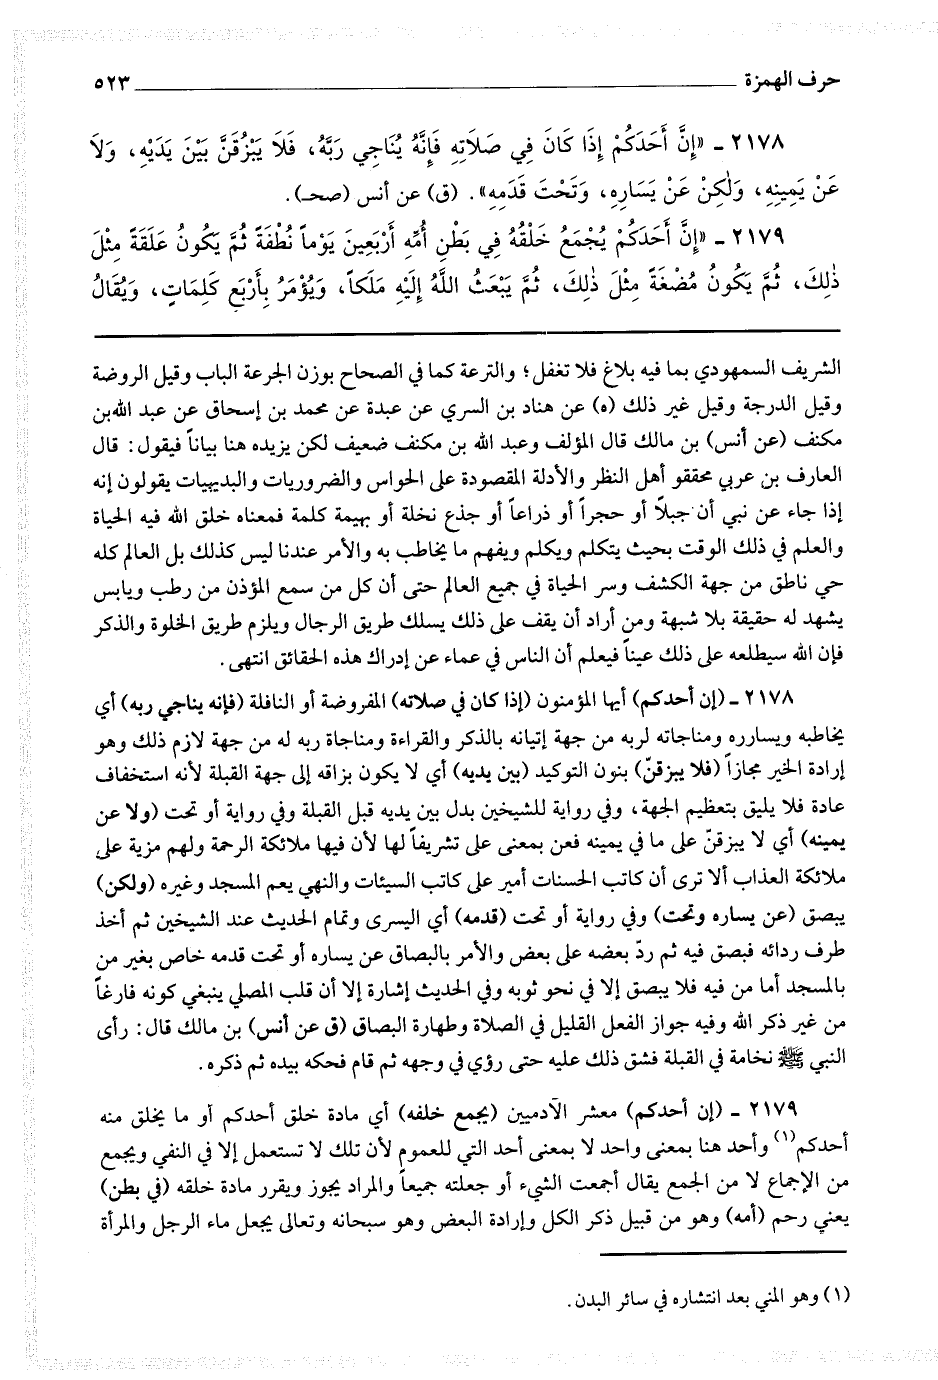 حرف الهمزة ٥٢٣
٢١٧٨ ـ «إِنَّ أَحَدَكُمْ إِذَا كَانَ فِي صَلَاتِهِ فَإِنَّهُ يُنَاجِي رَبَّهُ، فَلَا يَبْزُقَنَّ بَيْنَ يَدَيْهِ، وَلَا
عَنْ يَمِينِهِ، وَلٰكِنْ عَنْ يَسَارِهِ، وَتَحْتَ قَدَمِهِ». (ق) عن أنس (صحـ).
٢١٧٩ ـ «إِنَّ أَحَدَكُمْ يُجْمَعُ خَلْقُهُ فِي بَطْنِ أُمِّهِ أَرْبَعِينَ يَوْماً نُطْفَةً ثُمَّ يَكُونُ عَلَقَةً مِثْلَ
ذٰلِكَ، ثُمَّ يَكُونُ مُضْغَةً مِثْلَ ذٰلِكَ، ثُمَّ يَبْعَثُ اللَّهُ إِلَيْهِ مَلَكاً، وَيُؤْمَرُ بِأَرْبَعِ كَلِمَاتٍ، وَيُقَالُ
الشريف السمهودي بما فيه بلاغ فلا تغفل؛ والترعة كما في الصحاح بوزن الجرعة الباب وقيل الروضة
وقيل الدرجة وقيل غير ذلك (ه) عن هناد بن السري عن عبدة عن محمد بن إسحاق عن عبد الله بن
مكنف (عن أنس) بن مالك قال المؤلف وعبد الله بن مكنف ضعيف لكن يزيده هنا بياناً فيقول: قال
العارف بن عربي محققو أهل النظر والأدلة المقصودة على الحواس والضروريات والبديهيات يقولون إنه
إذا جاء عن نبي أن جبلاً أو حجراً أو ذراعاً أو جذع نخلة أو بهيمة كلمة فمعناه خلق الله فيه الحياة
والعلم في ذلك الوقت بحيث يتكلم ويكلم ويفهم ما يخاطب به والأمر عندنا ليس كذلك بل العالم كله
حي ناطق من جهة الكشف وسر الحياة في جميع العالم حتى أن كل من سمع المؤذن من رطب ويابس
يشهد له حقيقة بلا شبهة ومن أراد أن يقف على ذلك يسلك طريق الرجال ويلزم طريق الخلوة والذكر
فإن الله سيطلعه على ذلك عيناً فيعلم أن الناس في عماء عن إدراك هذه الحقائق انتهى.
٢١٧٨ ـ (إن أحدكم) أيها المؤمنون (إذا كان في صلاته) المفروضة أو النافلة (فإنه يناجي ربه) أي
يخاطبه ويسارره ومناجاته لربه من جهة إتيانه بالذكر والقراءة ومناجاة ربه له من جهة لازم ذلك وهو
إرادة الخير مجازاً (فلا يبزقنّ) بنون التوكيد (بين يديه) أي لا يكون بزاقه إلى جهة القبلة لأنه استخفاف
عادة فلا يليق بتعظيم الجهة، وفي رواية للشيخين بدل بين يديه قبل القبلة وفي رواية أو تحت (ولا عن
يمينه) أي لا يبزقنّ على ما في يمينه فعن بمعنى على تشريفاً لها لأن فيها ملائكة الرحمة ولهم مزية على
ملائكة العذاب ألا ترى أن كاتب الحسنات أمير على كاتب السيئات والنهي يعم المسجد وغيره (ولكن)
يبصق (عن يساره وتحت) وفي رواية أو تحت (قدمه) أي اليسرى وتمام الحديث عند الشيخين ثم أخذ
طرف ردائه فبصق فيه ثم ردّ بعضه على بعض والأمر بالبصاق عن يساره أو تحت قدمه خاص بغير من
بالمسجد أما من فيه فلا يبصق إلا في نحو ثوبه وفي الحديث إشارة إلا أن قلب المصلي ينبغي كونه فارغاً
من غير ذكر الله وفيه جواز الفعل القليل في الصلاة وطهارة البصاق (ق عن أنس) بن مالك قال: رأى
النبي ﷺ نخامة في القبلة فشق ذلك عليه حتى رؤي في وجهه ثم قام فحكه بيده ثم ذكره.
٢١٧٩ ـ (إن أحدكم) معشر الآدميين (يجمع خلفه) أي مادة خلق أحدكم أو ما يخلق منه
أحدكم(١) وأحد هنا بمعنى واحد لا بمعنى أحد التي للعموم لأن تلك لا تستعمل إلا في النفي ويجمع
من الإجماع لا من الجمع يقال أجمعت الشيء أو جعلته جميعاً والمراد يجوز ويقرر مادة خلقه (في بطن)
يعني رحم (أمه) وهو من قبيل ذكر الكل وإرادة البعض وهو سبحانه وتعالى يجعل ماء الرجل والمرأة
(١) وهو المني بعد انتشاره في سائر البدن.